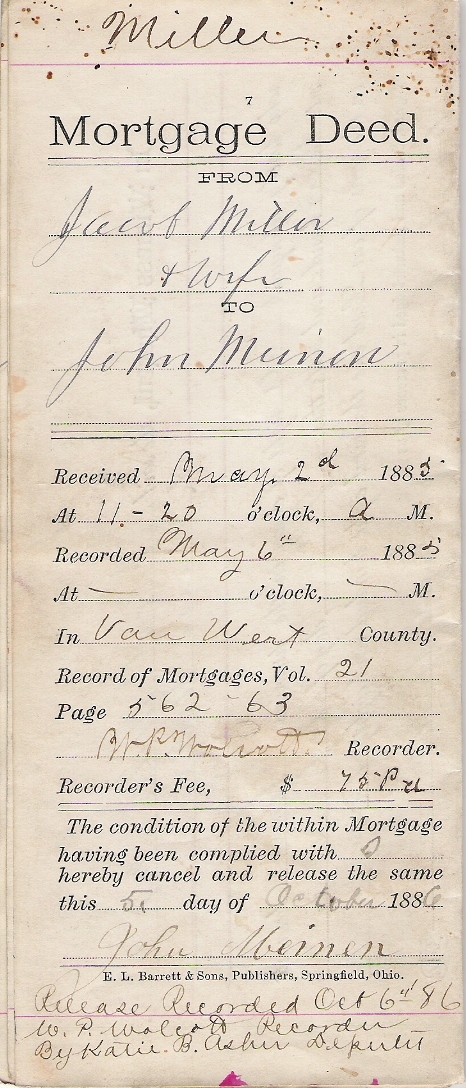 Miller
7
Mortgage Deed.
FROM
Jacob Miller
& Wife
TO
John Meinen
Received May 2d 1885
At 11-20 o'clock, A M.
Recorded May 6th 1885
At — o'clock, — M.
In Van Wert County.
Record of Mortgages, Vol. 21
Page 562-63
W.P. Wolcott Recorder.
Recorder's Fee, $ 75 Pd
The condition of the within Mortgage
having been complied with I
hereby cancel and release the same
this 5. day of October 1886
John Meinen
E. L. Barrett & Sons, Publishers, Springfield, Ohio.
Release Recorded Oct 6th 86
W. P. Wolcott Recorder
By Katie B. Asher Deputy